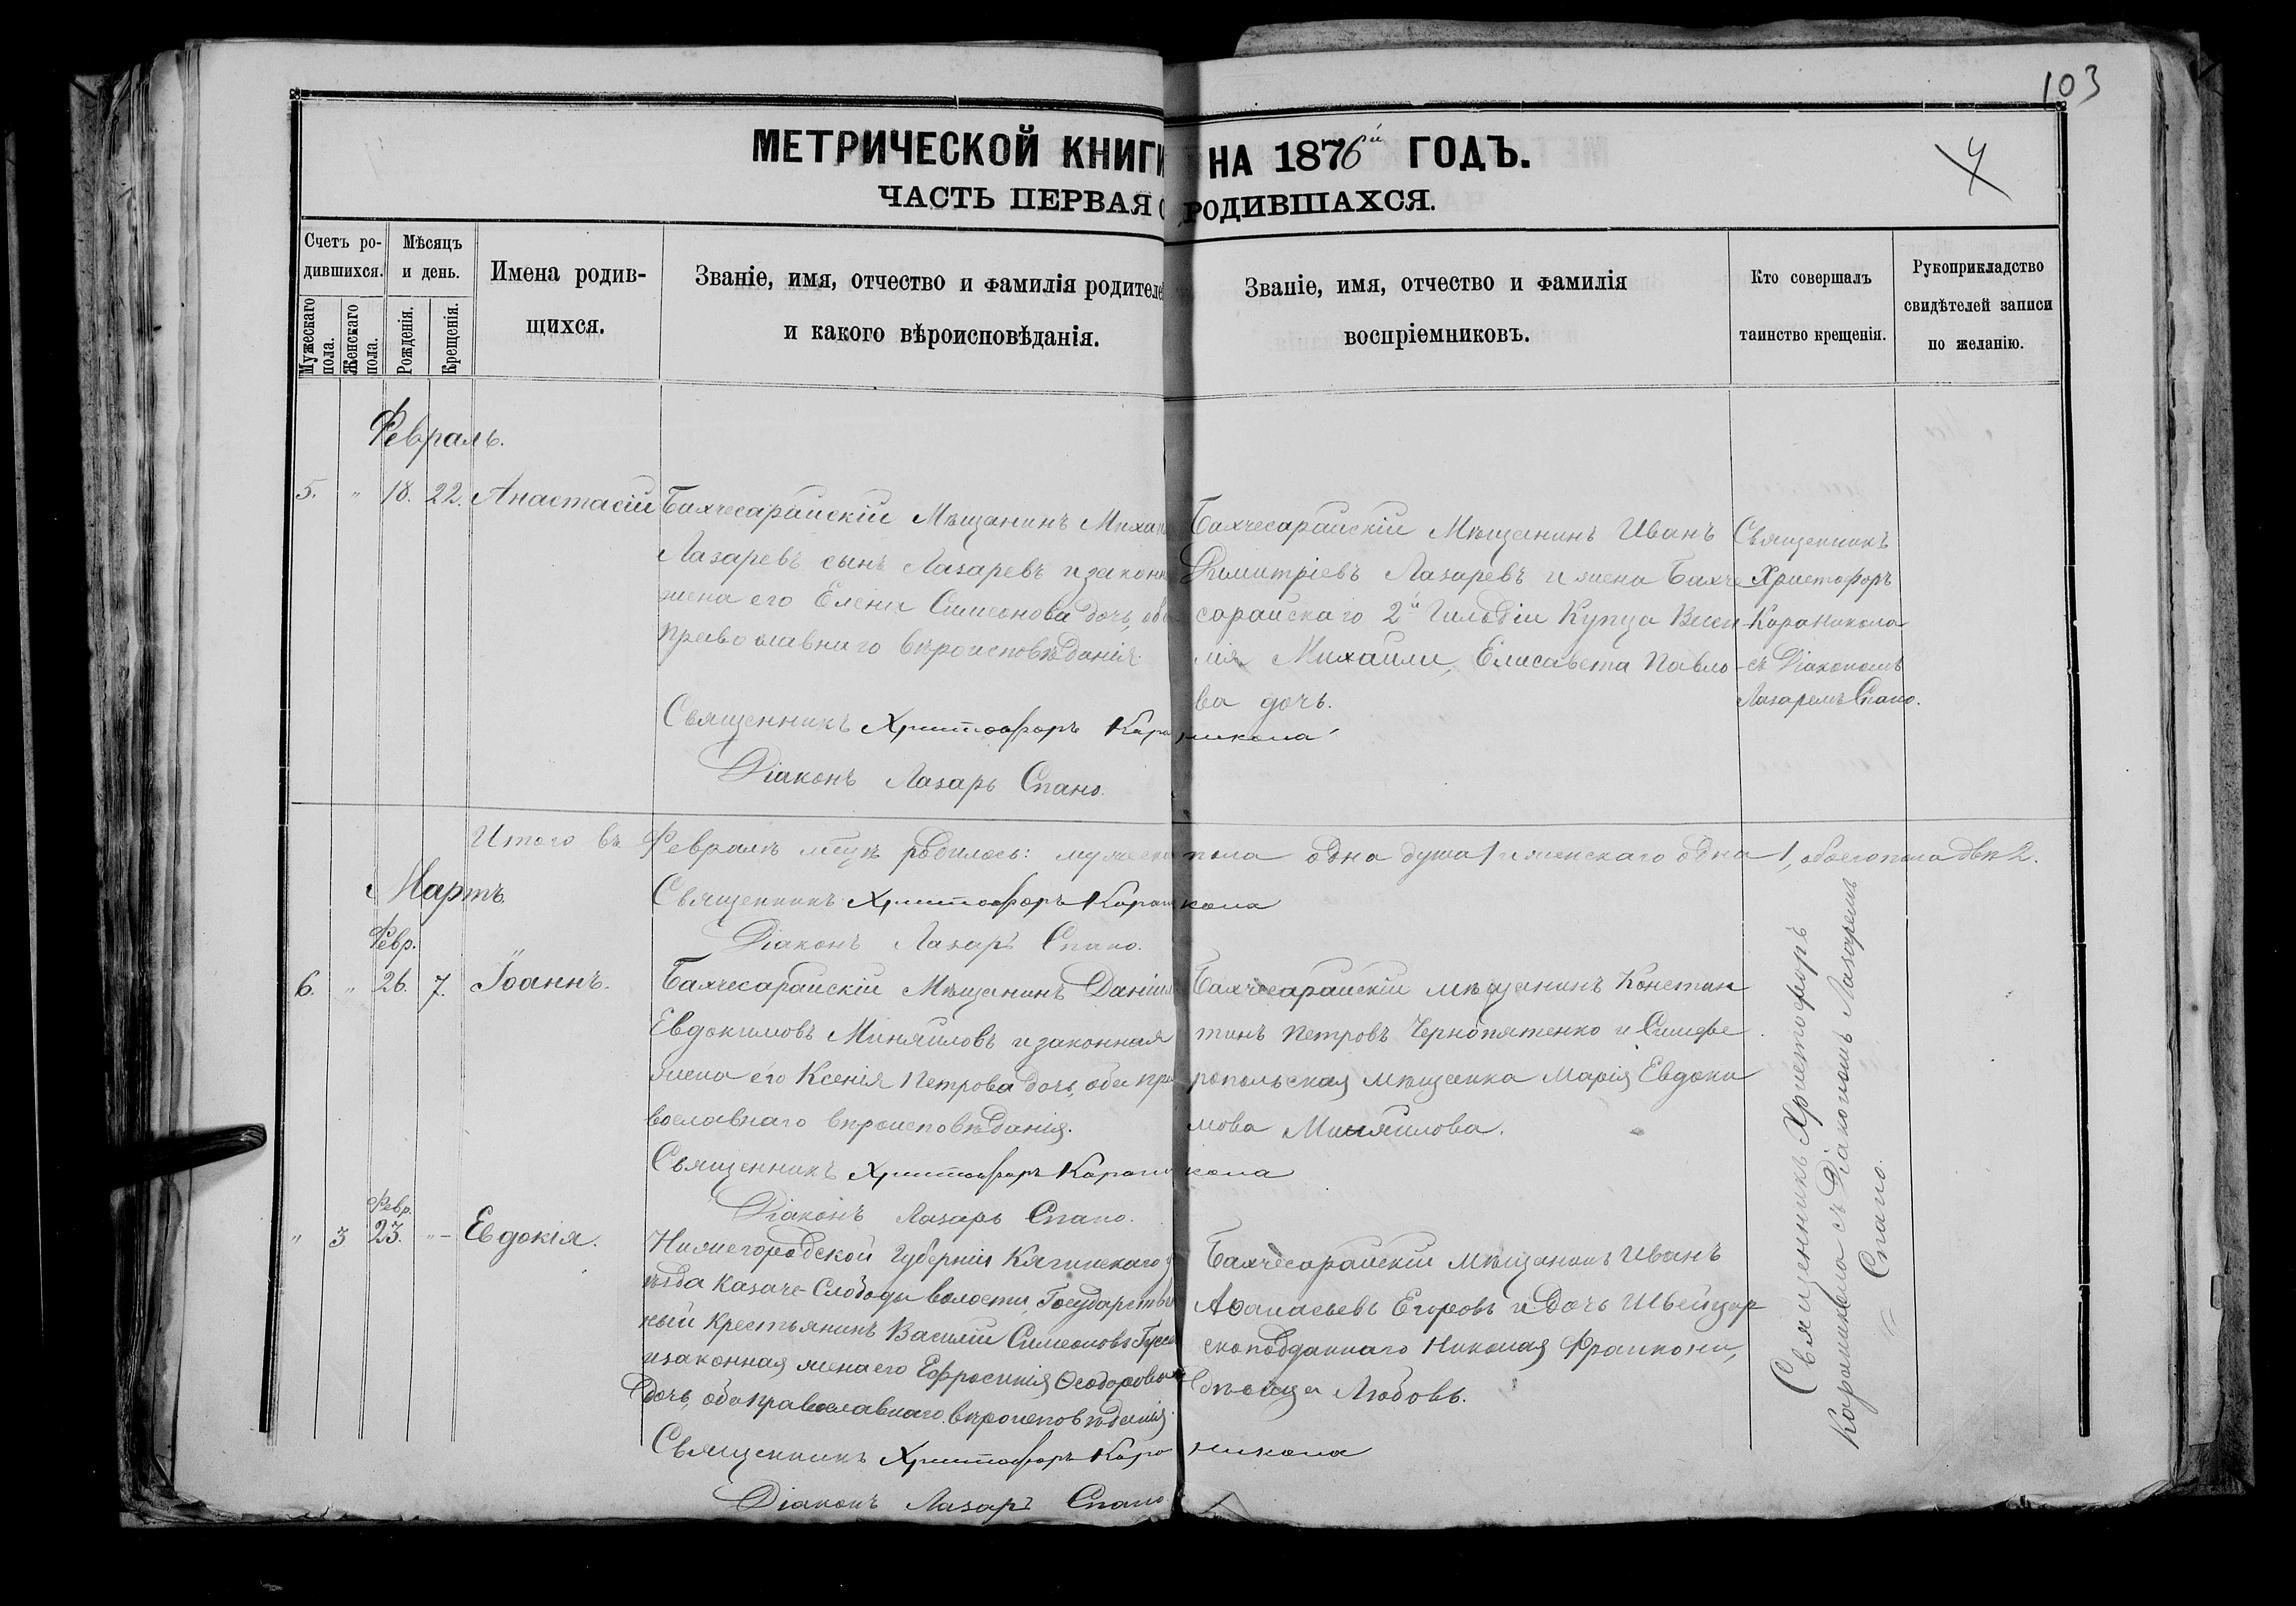 103
4
МЕТРИЧЕСКОЙ КНИГИ НА 1876й ГОДЪ.
ЧАСТЬ ПЕРВАЯ О РОДИВШАХСЯ.
Счетъ родившихся.
Мужескаго пола.
Женскаго пола.
Мѣсяцъ и день.
Рожденія.
Крещенія.
Имена родившихся.
Званіе, имя, отчество и фамилія родителей
и какого вѣроисповѣданія.
Званіе, имя, отчество и фамилія
воспріемниковъ.
Кто совершалъ
таинство крещенія.
Рукоприкладство
свидѣтелей записи
по желанію.
Февраль.
5. " 18. 22. Анастасій
Бахчесарайскій Мѣщанинъ Михаи
Лазаревъ сынъ Лазаревъ и законн
жена его Елена Симеонова дочь, оба
православнаго вѣроисповѣданія.
Бахчесарайскій Мѣщанинъ Иванъ
Димитріевъ Лазаревъ и жена Бахче
сарайскаго 2й Гильдіи Купца
Михаили, Елисавета Павло-
ва дочь.
Священникъ
Христофоръ
Караникола
съ Діакономъ
Лазаремъ Спано.
Священникъ Христофоръ Караникола
Діаконъ Лазарь Спано.
Итого въ Февралѣ м-цѣ родилось: мужеска пола одна душа 1 и женскаго одна 1, обоего пола двѣ 2.
Мартъ.
Священникъ Христофоръ Караникола
Діаконъ Лазарь Спано.
Февр.
6. " 26. 7. Іоаннъ.
Бахчесарайскій Мѣщанинъ Даніилъ
Евдокимовъ Миняиловъ и законная
жена его Ксенія Петрова дочь, оба пра
вославнаго вѣроисповѣданія.
Бахчесарайскій мѣщанинъ Констан
тинъ Петровъ Чернопятенко и Симфе
ропольская мѣщанка Марія Евдоки
мова Миняилова.
Священникъ Христофоръ Караникола
Діаконъ Лазарь Спано.
Февр.
" 3 23. " - Евдокія.
Нижегородской Губерніи Княгинскаго у
ѣзда Казаче-Слободы волости, Государствен
ный Крестьянинъ Василій Симеоновъ
и законная жена его Ефросинія Ѳеодорова
дочь, оба православнаго вѣроисповѣданія.
Бахчесарайскій мѣщанинъ Иванъ
Аѳанасьевъ Егоровъ и дочь Швейцар
скоподданнаго Николая Франкони,
дѣвица Любовь.
Священникъ Христофоръ
Караникола съ Діакономъ Лазаремъ
Спано.
Священникъ Христофоръ Караникола
Діаконъ Лазарь Спано